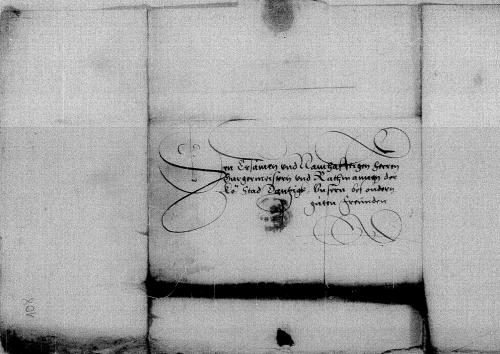 Den Ersamen vnd Namhafftigen Herrn
Burgermeistern vnd Rathmannen der
Kö: Stad Dantzigk Vnsern besondern
guten Freunden